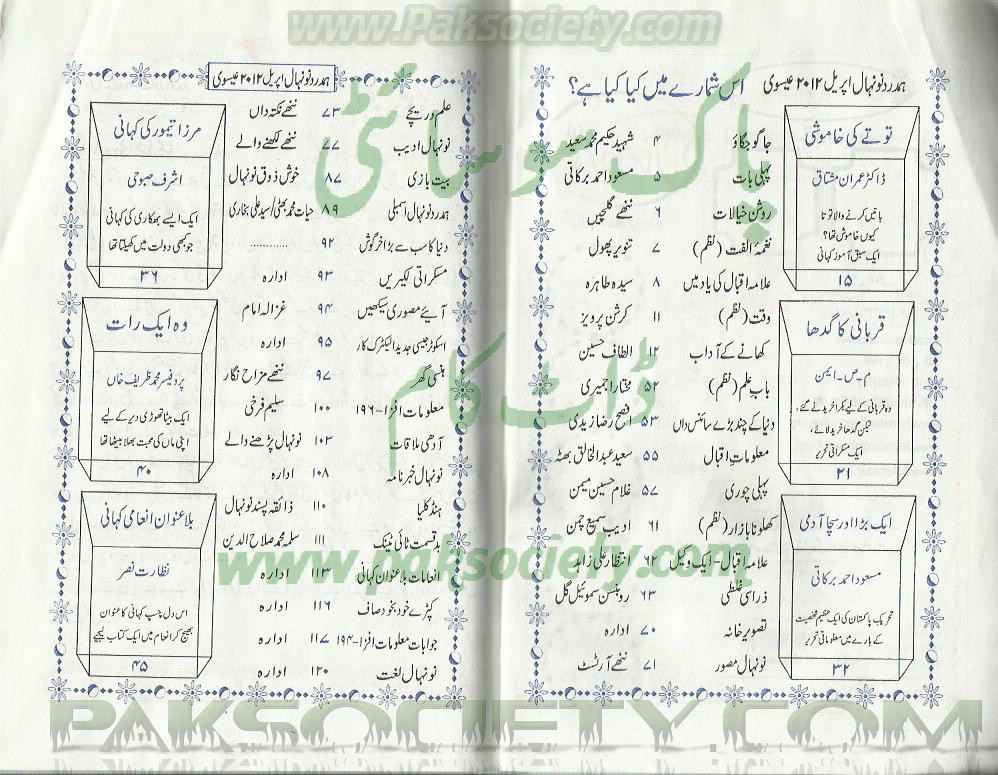 www.Paksociety.com
ہمدرد نونہال اپریل ۲۰۱۲ عیسوی
اس شمارے میں کیا کیا ہے؟
توتے کی خاموشی
ڈاکٹر عمران مشتاق
باتیں کرنے والا توتا
کیوں خاموش تھا؟
ایک سبق آموز کہانی
۱۵
قربانی کا گدھا
م۔ص۔ایمن
وہ قربانی کے لیے بکرا خریدنے گئے،
لیکن گدھا خرید لائے،
ایک مسکراتی تحریر
۲۱
ایک بڑا اور سچا آدمی
مسعود احمد برکاتی
تحریک پاکستان کی ایک عظیم شخصیت
کے بارے میں معلوماتی تحریر
۳۲
جاگو جگاؤ ۴ شہید حکیم محمد سعید
پہلی بات ۵ مسعود احمد برکاتی
روشن خیالات ۶ ننھے گلچیں
نغمۂ الفت (نظم) ۷ تنویر پھول
علامہ اقبال کی یاد میں ۸ سیدہ طاہرہ
وقت (نظم) ۱۱ کرشن پرویز
کھانے کے آداب ۱۲ الطاف حسین
باب علم (نظم) ۵۲ مختار اجمیری
دنیا کے چند بڑے سائنس داں ۵۳ رضا زیدی
معلومات اقبال ۵۵ سعید عبدالخالق بھٹہ
پہلی چوری ۵۷ غلام حسین میمن
کھلونا بازار (نظم) ۶۱ ادیب سمیع چمن
علامہ اقبال - ایک وکیل ۶۲ انتظار علی زاہد
ذرا سی غلطی ۶۳ روبنسن سموئیل گل
تصویر خانہ ۷۰ ادارہ
نونہال مصور ۷۱ ننھے آرٹسٹ
ہمدرد نونہال اپریل ۲۰۱۲ عیسوی
علم دریچے ۷۳ ننھے نکتہ داں
نونہال ادیب ۷۷ ننھے لکھنے والے
بیت بازی ۸۷ خوش ذوق نونہال
ہمدرد نونہال اسمبلی ۸۹ حیات محمد بھٹی/سید علی بخاری
دنیا کا سب سے بڑا خرگوش ۹۲ ............
مسکراتی لکیریں ۹۳ ادارہ
آیئے مصوری سیکھیں ۹۴ غزالہ امام
اسکوٹر جیسی جدید الیکٹرک کار ۹۵ ادارہ
ہنسی گھر ۹۷ ننھے مزاح نگار
معلومات افزا-۱۹۶ ۱۰۰ سلیم فرخی
آدھی ملاقات ۱۰۳ نونہال پڑھنے والے
نونہال خبرنامہ ۱۰۸ ادارہ
ہنڈکلیا ۱۱۰ ذائقہ پسند نونہال
بدقسمت ٹائی ٹینک ۱۱۱ سلمہ محمد صلاح الدین
انعامات بلاعنوان کہانی ۱۱۳ ادارہ
کپڑے خود بخود صاف ۱۱۶ ادارہ
جوابات معلومات افزا-۱۹۴ ۱۱۷ ادارہ
نونہال لغت ۱۲۰ ادارہ
مرزا تیمور کی کہانی
اشرف صبوحی
ایک ایسے بھکاری کی کہانی
جو کبھی دولت میں کھیلتا تھا
۳۶
وہ ایک رات
پروفیسر محمد ظریف خاں
ایک بیٹا تھوڑی دیر کے لیے
اپنی ماں کی محبت بھلا بیٹھا تھا
۴۰
بلاعنوان انعامی کہانی
نظارت نصر
اس دل چسپ کہانی کا عنوان
بھیج کر انعام میں ایک کتاب لیجیے
۴۵
پاک سوسائٹی
ڈاٹ کام
www.paksociety.com
PAKSOCIETY.COM